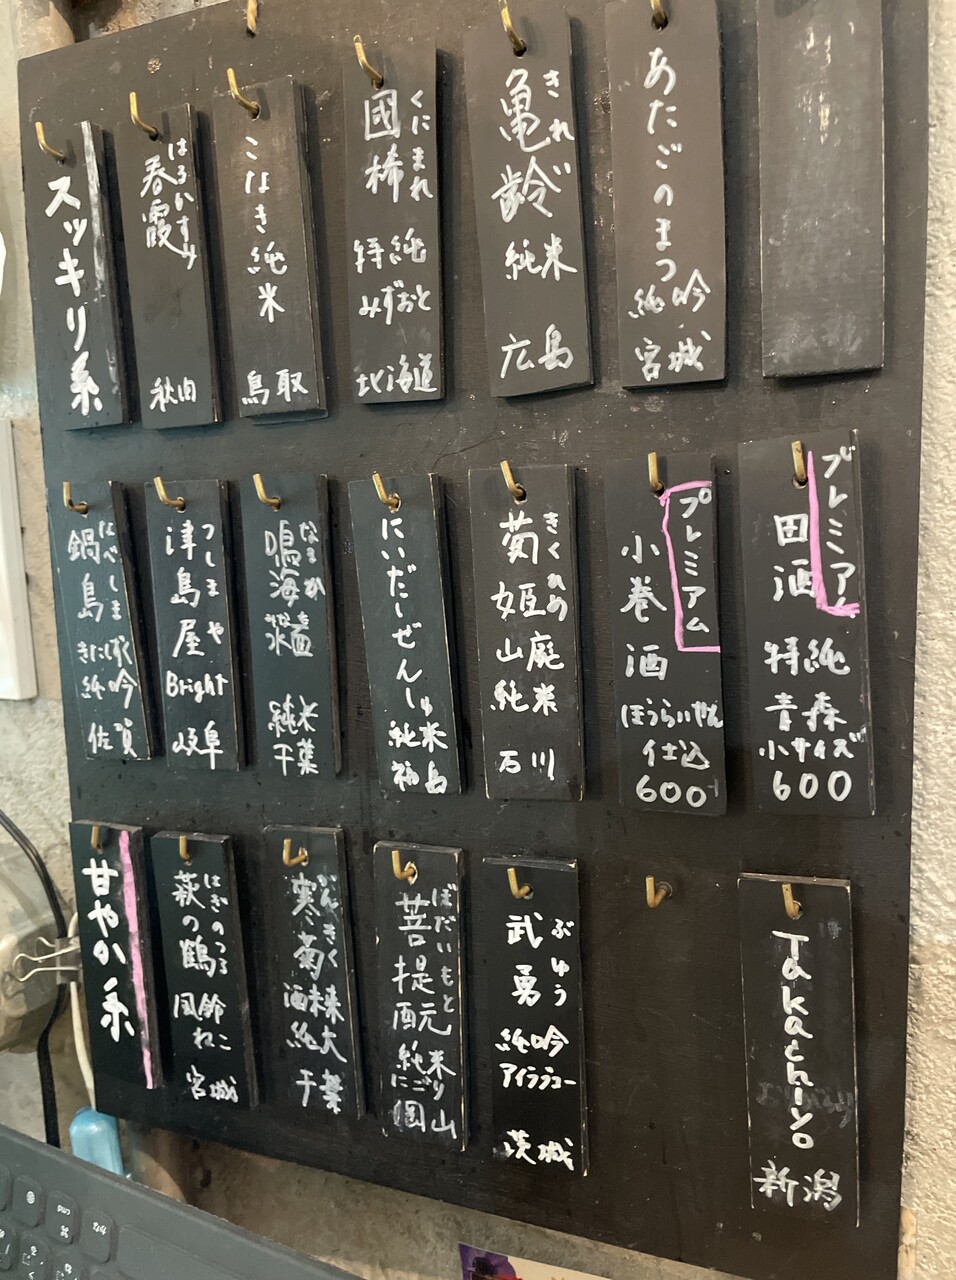 スッキリ系
春霞
はるがすみ
秋田
こなき純
米
鳥取
國稀
くにまれ
特純
みずおと
北海道
亀齢
きれい
純米
広島
あたごのまつ
純吟
宮城
鍋島
なべしま
きたしずく
純吟
佐賀
津島屋
つしまや
Bright
岐阜
鳴海
なるか
純米
千葉
にいだしぜんしゅ
純米
福島
菊姫
きくひめ
山廃
純米
石川
プレミアム
小巻
酒
ほうらいせん
仕込
600
プレミアム
田酒
特純
青森
小サイズ
600
甘やか系
萩の鶴
はぎのつる
風鈴
ねこ
宮城
寒菊
かんきく
純大
千葉
菩提酛
ぼだいもと
純米
にごり
岡山
武勇
ぶゆう
純吟
茨城
Takachiyo
新潟